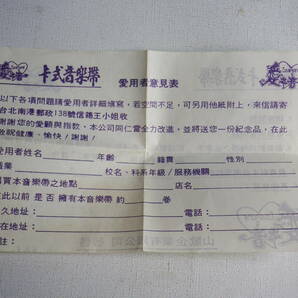 愛的語 卡式音樂帶 愛用者意見表
以下各項問題請愛用者詳細填寫，若空間不足，可另用他紙附上，來信請寄
台北南港郵政138號信箱王小姐收
謝謝您的愛顧與指教，本公司同仁當全力改進，並將送您一份紀念品，在此
敬祝健康，愉快！謝謝！
愛用者姓名 年齡 籍貫 性別
職業 校名、科系年級/服務機關
購買本音樂帶之地點 店名
在此以前 是否 擁有本音樂帶 約 卷
永久地址： 電話：
現在地址： 電話：
註：